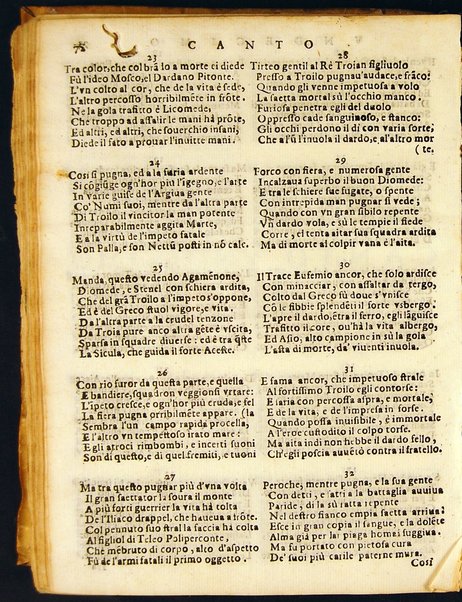 78
CANTO
23
Tra color, che colbrà lo a morte ei diede
Fù l'ideo Mosco, el Dardano Pitonte.
L'vn colto al cor, che de la vita è sede,
L'altro percosso horribilmẽte in frõte.
Ne la gola trafitto è Licomede,
Che troppo ad assalir le mani hà prõte,
Ed altri, ed altri, che souerchio insani,
Diede il fato a prouar l'inuitte mani.
24
Così si pugna, ed a la furia ardente
Si cõgiũge ogn'hor più l'igegno, e l'arte
In varie guise de l'Argiua gente
Co' Numi suoi, mentre da l'altra parte
Di Troilo il vincitor la man potente
Irreparabilmente aggita Marte,
E a la virtù de l'impeto fatale
Son Palla, e son Nettũ posti in nõ cale.
25
Manda, questo vedendo Agamẽnone,
Diomede, e Stenel con schiera ardita,
Che del grã Troilo a l'impeto s'oppone,
Ed è del Greco stuol vigore, e vita.
Da l'altra parte a la crudel tenzone
Da Troia pure anco altra gẽte è vscita,
Sparsa in squadre diuerse: ed è tra q̃ste
La Sicula, che guida il forte Aceste.
26
Con rio furor da questa parte, e quella
E bandiere, squadron veggionsi vrtare:
L'ĩpeto cresce, e ogn'hor più cruda, e fella
La fiera pugna orribilmẽte appare. (la
Sembra l'un campo rapida procella,
E l'altro vn tempestoso irato mare:
Egli atroci rimbombi, e incerti suoni
Son di questo, e di quel fremiti, e tuoni
27
Ma tra questo pugnar più d'vna volta
Il gran saettator la soura il monte
A più forti guerrier la vita hà tolta
De l'Iliaco drappel, che haueua a frõte.
Col pennuto suo stral la faccia hà colta
Al figliol di Teleo Poliperconte,
Che mẽbruto di corpo, alto d'aspetto
Fù de l'armi fatali il primo oggetto.
28
Tirteo gentil al Rè Troian figliuolo
Presso a Troilo pugnau'audace, e frãco:
Quando gli venne impetuosa a volo
La saetta mortal sù l'occhio manco.
Furiosa penetra egli del duolo
Oppresso cade sanguinoso, e stanco:
Gli occhi perdono il dì con varia sorte;
Che a l'ũ l'inuola il dardo, e al'altro mor
(te,
29
Forco con fiera, e numerosa gente
Incalzaua superbo il buon Diomede:
E tra le schiere sue fugate, o spente
Con intrepida man pugnar si vede;
Quando con vn gran sibilo repente
Vn dardo vola, e sù le tempie il fiede
Corre, el tenta aitar sua squadra ardita
Ma di morte al colpir vana è l'aita.
30
Il Trace Eufemio ancor, che solo ardisce
Con minacciar, con assaltar da tergo,
Colto dal Greco fù doue s'vnisce
Cõ le fibbie splendẽti il forte vsbergo.
L'apre il dardo, ẽtra il ferro, e gli l'aguisce
Trafitto il core, ou'hà la vita albergo,
Ed Asio, alto campione in sù la gola
L'asta di morte, da' viuenti inuola.
31
E sama ancor, che impetuoso strale
Al fortissimo Troilo egli contorse:
E iaria con percossa aspra, e mortale,
E de la vita, e de l'impresa in forse.
Quando possa inuisibile, è immortale
Al'eroe custodito il colpo torse.
Ma aita indi non hebbe il dardo fello,
Ch'egli poscia auuẽtò contra il fratello.
32
Peroche, mentre pugna, e la sua gente
Con detti, e atti a la battaglia auuiua
Paride, di là sù ratta repente
Nel destro fianco empita saetta arriua:
Esce in gran copia il sangue, e la dolẽte
Alma già per la piaga homai fuggiua.
Ma fu portato con pietosa cura
De' suoi più carile paterne mura.
Così